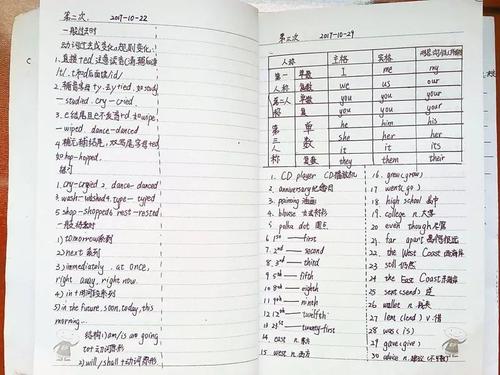 第二次 2017-10-22
一般过去时
动词过去式变化规则变化:
1. 直接+ed 注意读音(清辅后读
/t/. t和d后面读/id/)
2. 辅音字母+y. 去y+ied. 如study
- studied. cry - cried
3. e结尾且e不发音+d 如wipe.
- wiped. dance - danced
如hop - hopped.
练习
1. cry - cryied 2. dance - danced
3. wash - washed 4. type - typed
5. shop - shopped 6 rest - rested
一般将来时
1) tomorrow系列
2) next 系列
3) immediately. at once,
right away. right now.
4) in+时间段系列
5) in the future, soon, today, this
morning...
结构: 1) am/is are going
to+动词原形
2) will/shall+动词原形
第三次 2017-10-29
人称 主格 宾格
第一人称 单数 I me my
复数 we us our
第二人称 单数 you you your
复 you you your
第三人称 单数 he him his
she her her
it it its
复数 they them their
1. CD player CD播放机
2. anniversary 纪念日
3. painting 油画
4. blouse 女式衬衫
5. polka dot 圆点
6. 1st — first
7. 2nd — second
8. 3rd — third
9. 5th — fifth
10. 8th — eighth
11. 9th — ninth
12. 12th — twelfth
13. 21st — twenty-first
14. east n. 东方
15. west n. 西方
16. grew (grow)
17. went (go)
18. high school 高中
19. college n. 大学
20. even though 尽管
21. far apart 离得很远
22. the West Coast 西海岸
23. still 仍然
24. the East Coast 东海岸
25. sent (send) 送
26. wallet n. 钱夹
27. lent (lend) v. 借
28. was (is)
29. gave (give)
30. advice n. 建议 (不可数)